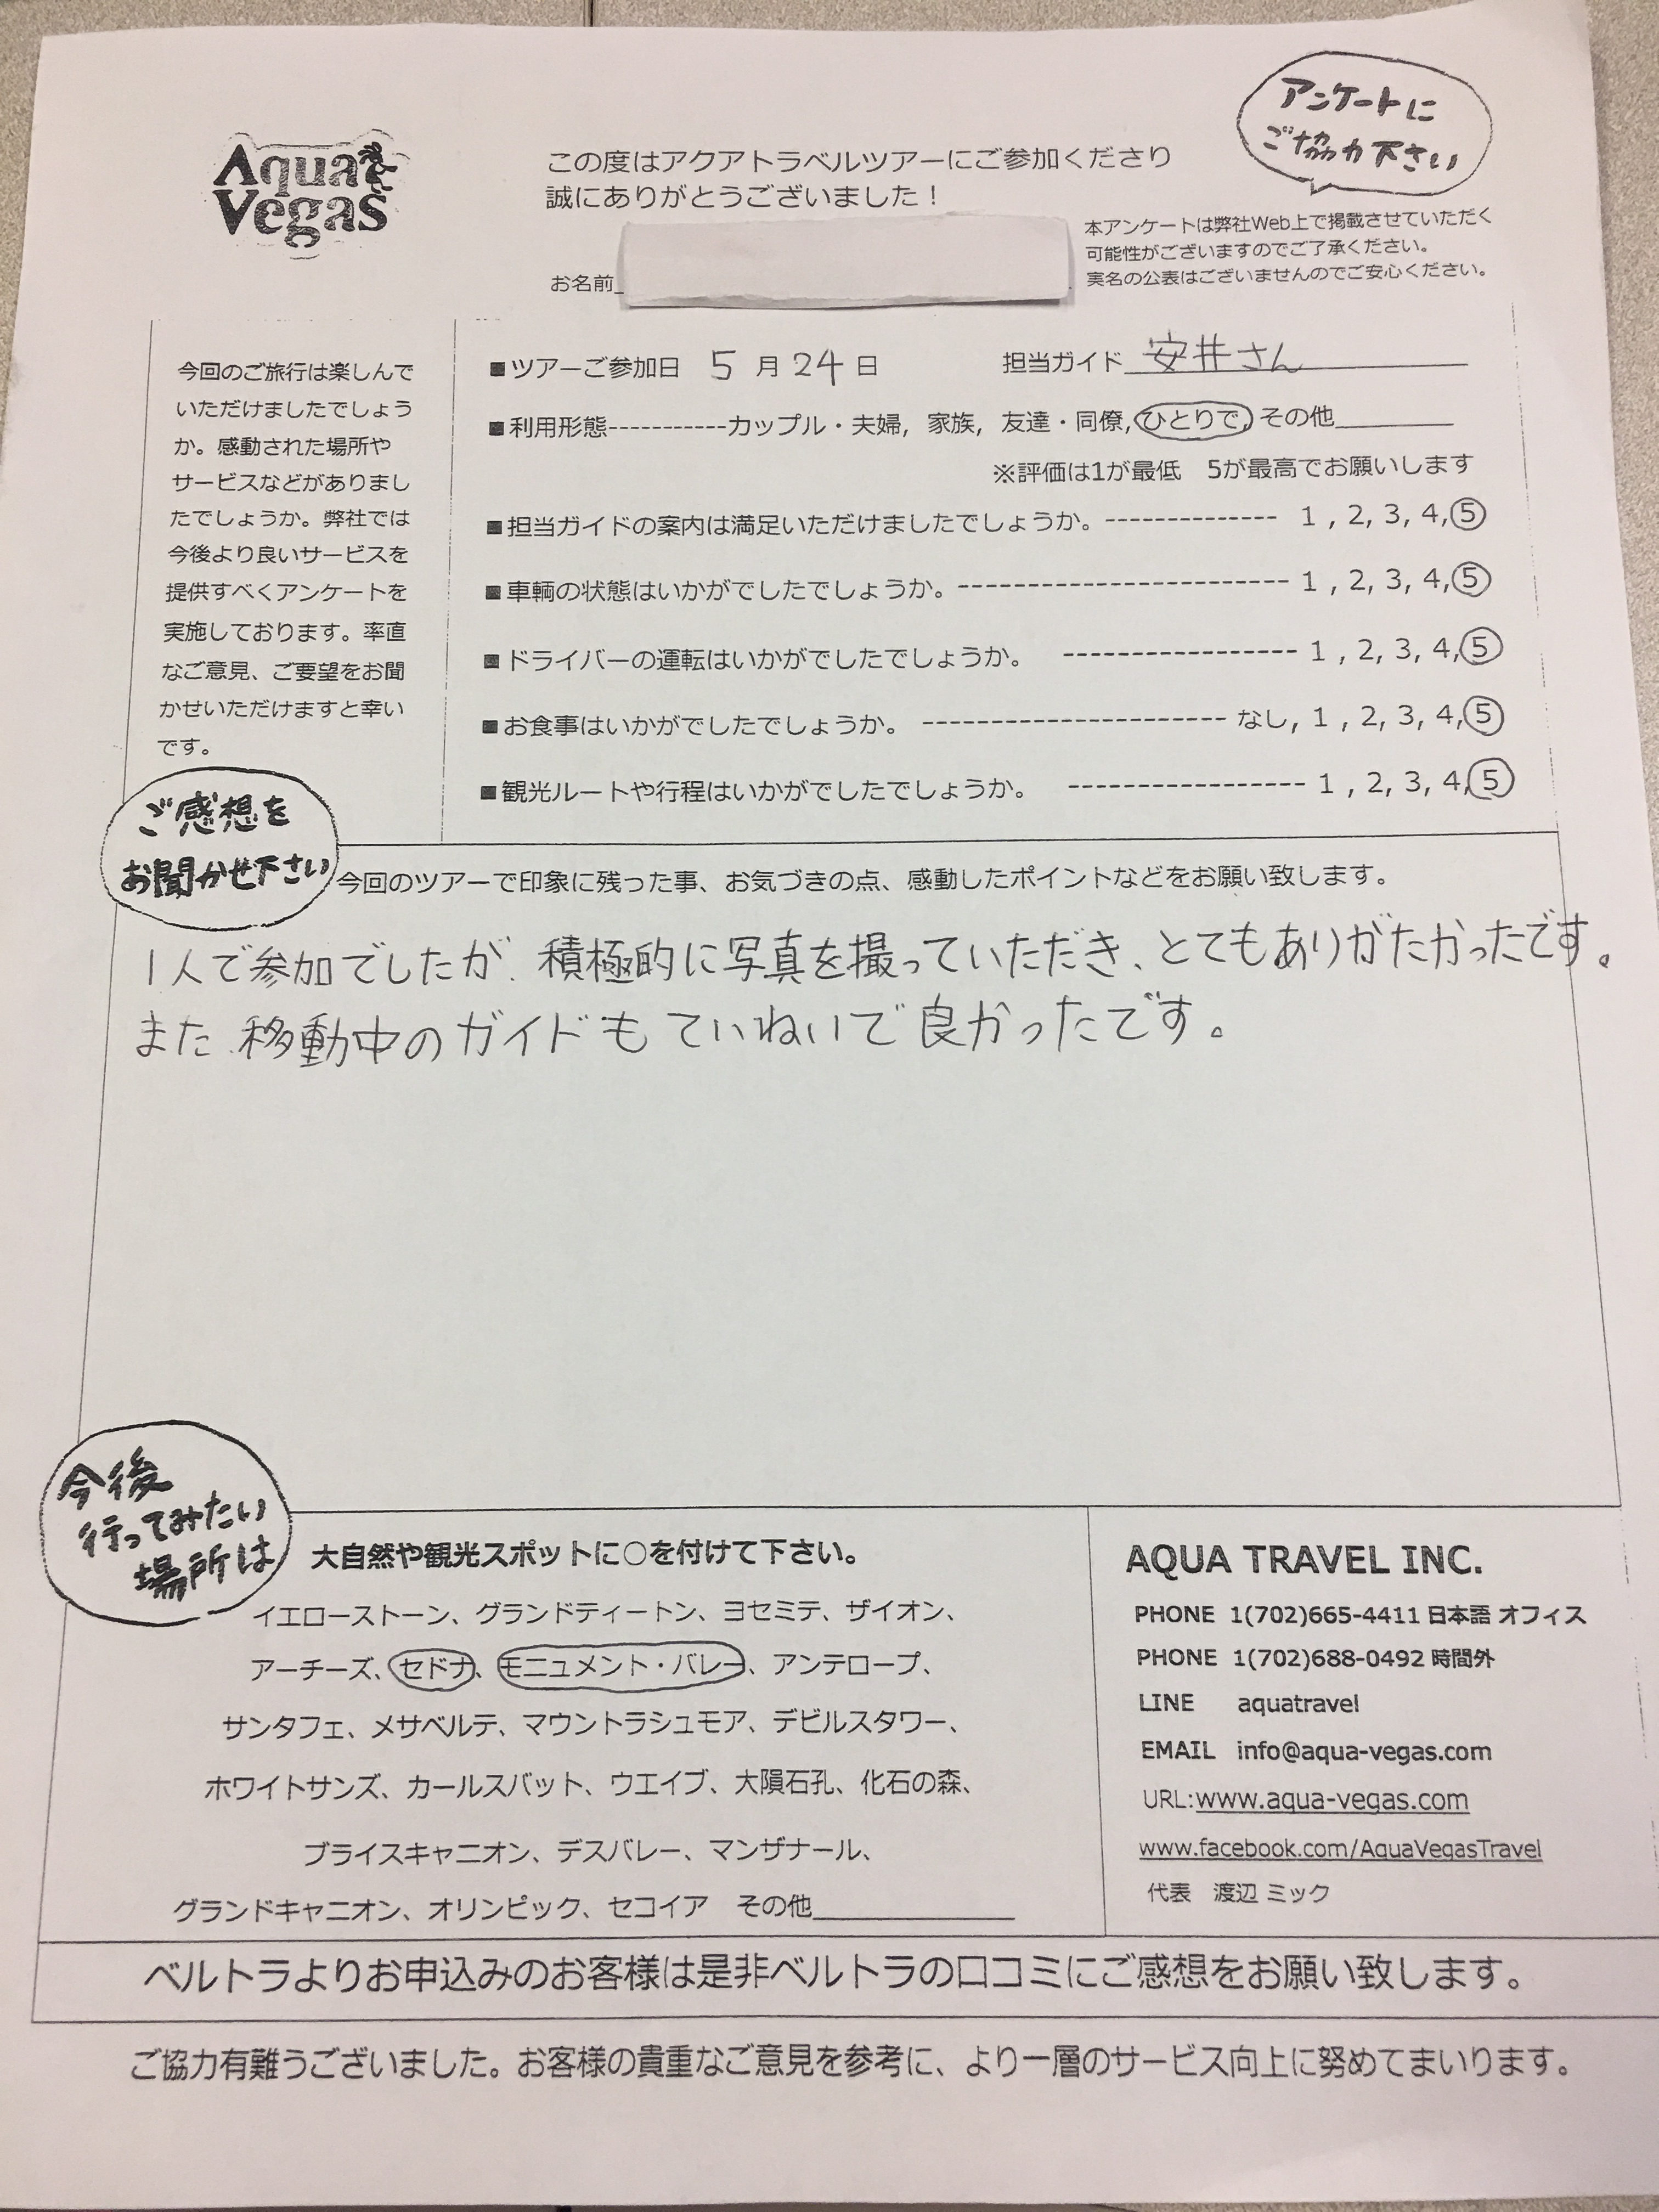 アンケートに
ご協力下さい
Aqua
Vegas
この度はアクアトラベルツアーにご参加くださり
誠にありがとうございました！
お名前
本アンケートは弊社Web上で掲載させていただく
可能性がございますのでご了承ください。
実名の公表はございませんのでご安心ください。
今回のご旅行は楽しんで
いただけましたでしょう
か。感動された場所や
サービスなどがありまし
たでしょうか。弊社では
今後より良いサービスを
提供すべくアンケートを
実施しております。率直
なご意見、ご要望をお聞
かせいただけますと幸い
です。
■ツアーご参加日 5 月 24 日 担当ガイド 安井さん
■利用形態-----------カップル・夫婦, 家族, 友達・同僚, ひとりで, その他
※評価は1が最低 5が最高でお願いします
■担当ガイドの案内は満足いただけましたでしょうか。-------------- 1 , 2, 3, 4, 5
■車輌の状態はいかがでしたでしょうか。----------------------- 1 , 2, 3, 4, 5
■ドライバーの運転はいかがでしたでしょうか。 ---------------- 1 , 2, 3, 4, 5
■お食事はいかがでしたでしょうか。 --------------------- なし, 1 , 2, 3, 4, 5
■観光ルートや行程はいかがでしたでしょうか。 ---------------- 1 , 2, 3, 4, 5
ご感想を
お聞かせ下さい
今回のツアーで印象に残った事、お気づきの点、感動したポイントなどをお願い致します。
1人で参加でしたが、積極的に写真を撮っていただき、とてもありがたかったです。
また、移動中のガイドもていねいで良かったです。
今後
行ってみたい
場所は
大自然や観光スポットに○を付けて下さい。
イエローストーン、グランドティートン、ヨセミテ、ザイオン、
アーチーズ、セドナ、モニュメント・バレー、アンテロープ、
サンタフェ、メサベルテ、マウントラシュモア、デビルスタワー、
ホワイトサンズ、カールスバット、ウエイブ、大隕石孔、化石の森、
ブライスキャニオン、デスバレー、マンザナール、
グランドキャニオン、オリンピック、セコイア その他
AQUA TRAVEL INC.
PHONE 1(702)665-4411 日本語 オフィス
PHONE 1(702)688-0492 時間外
LINE aquatravel
EMAIL info@aqua-vegas.com
URL:www.aqua-vegas.com
www.facebook.com/AquaVegasTravel
代表 渡辺 ミック
ベルトラよりお申込みのお客様は是非ベルトラの口コミにご感想をお願い致します。
ご協力有難うございました。お客様の貴重なご意見を参考に、より一層のサービス向上に努めてまいります。